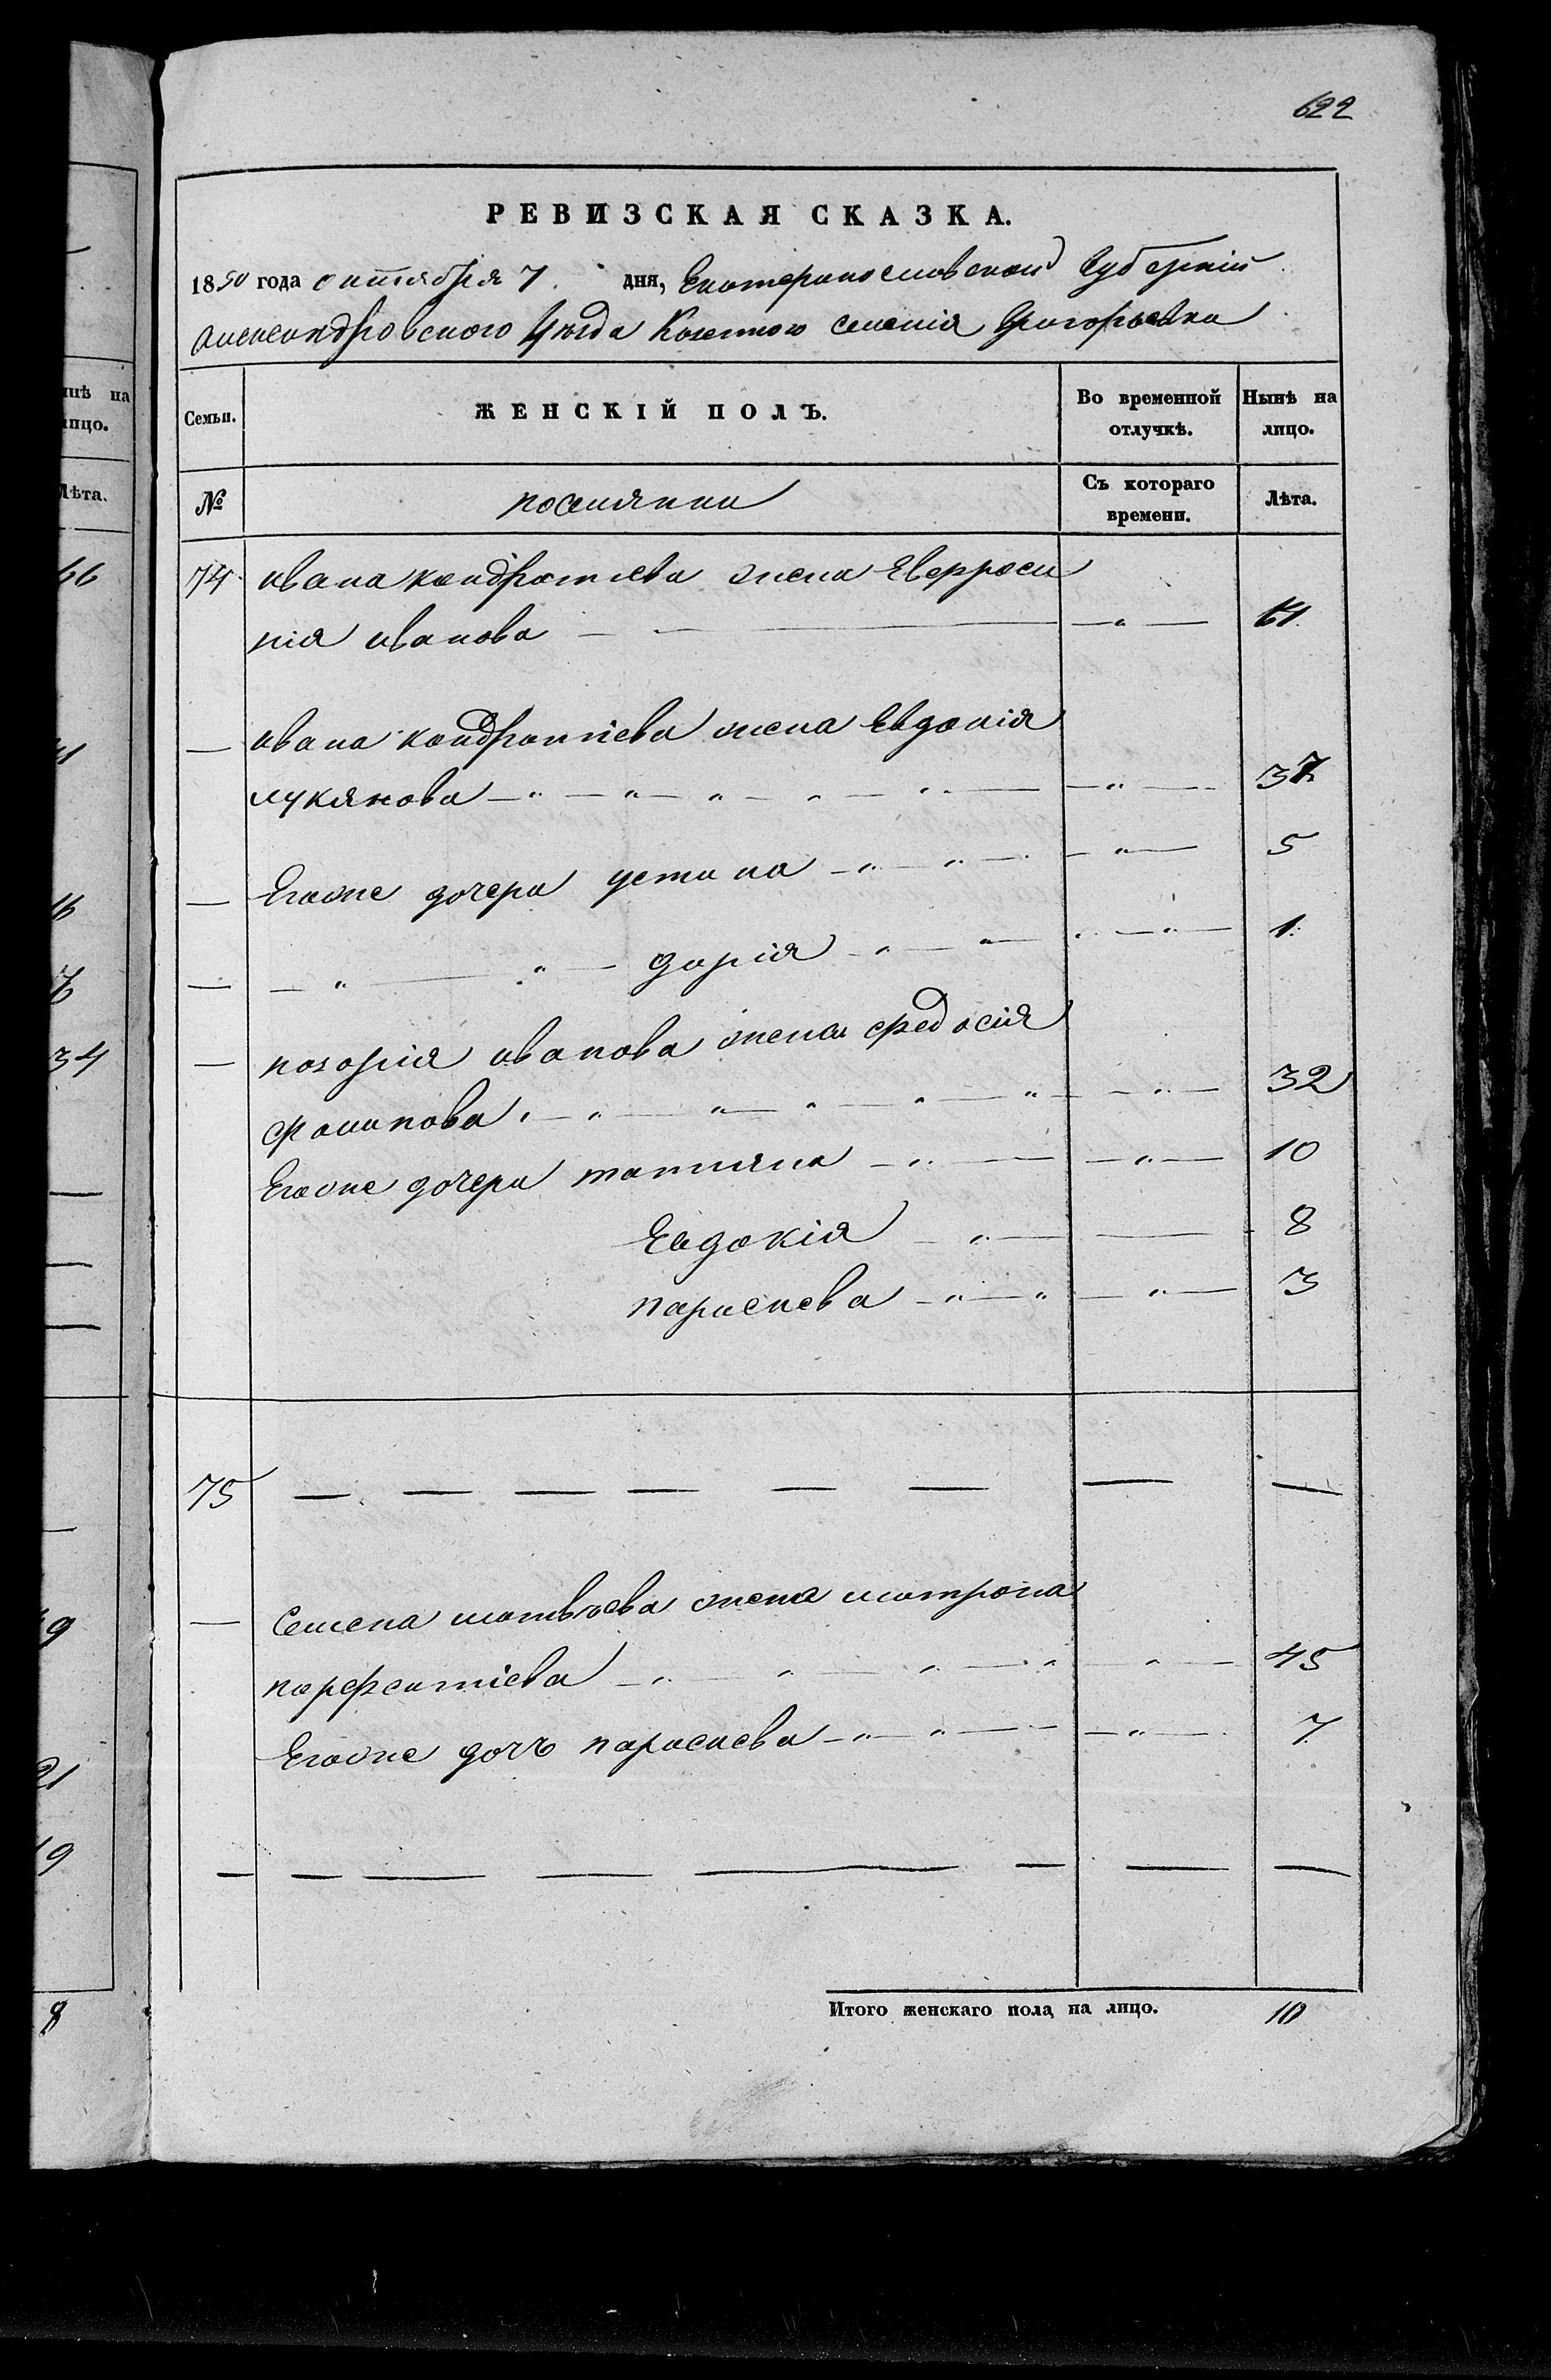 622
РЕВИЗСКАЯ СКАЗКА.
1850 года октября 7. дня, Екатеринославской Губерніи
Александровского Уѣзда Казенного селенія Григорьевки
Семьи. ЖЕНСКІЙ ПОЛЪ. Во временной отлучкѣ. Нынѣ на лицо.
№ поселянки Съ котораго времени. Лѣта.
74 ивана кондратиева жена Евфроси
нія иванова — — — „ — 61
— ивана кондратіева жена Евдокія
лукянова — „ — „ — „ — „ — „ — — „ — 37
— Егоже дочери устина — „ — „ — — „ — 5
— — „ — „ — дарія — „ — „ — „ — „ — 1
— назарія иванова жена федосія
фомикова „ — „ — „ — „ — „ — „ — „ — 32
Егоже дочери татияна — „ — — „ — 10
Евдокія — „ — — 8
параскева — „ — „ — „ — 3
75 — — — — — — — —
— Семена матвѣева жена матрона
парфентіева — „ — „ — „ — „ — „ — 45
Егоже дочь параскева — „ — „ — — „ — 7
— — — — — — — —
Итого женскаго пола на лицо. 10
инѣ на
лицо.
Лѣта.
66
41
16
34
21
19
8